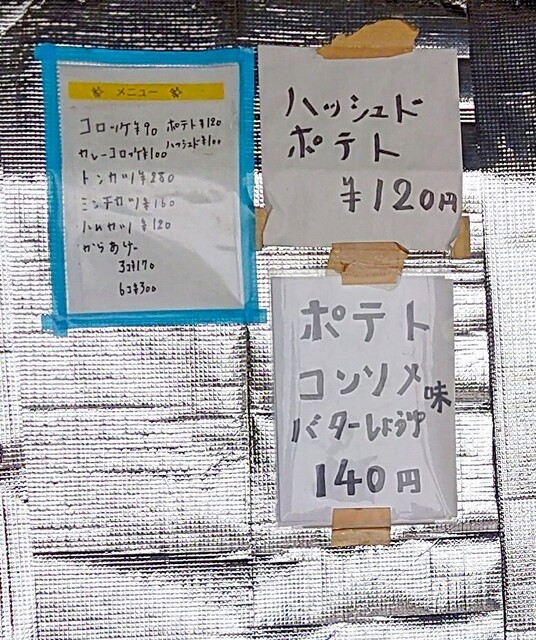 メニュー
コロッケ¥90 ポテト¥120
カレーコロッケ¥100 ハッシュド¥100
トンカツ¥280
ミンチカツ¥160
ハムカツ ¥120
からあげ
3コ¥170
6コ¥300
ハッシュド
ポテト
¥120円
ポテト
コンソメ味
バターしょうゆ
140円